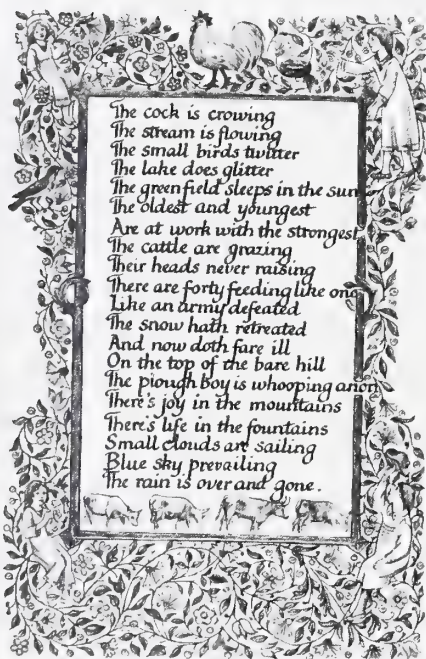 The cock is crowing
The stream is flowing
The small birds twitter
The lake does glitter
The green field sleeps in the sun
The oldest and youngest
Are at work with the strongest
The cattle are grazing
Their heads never raising
There are forty feeding like one
Like an army defeated
The snow hath retreated
And now doth fare ill
On the top of the bare hill
The plough boy is whooping anon
There's joy in the mountains
There's life in the fountains
Small clouds are sailing
Blue sky prevailing
The rain is over and gone.